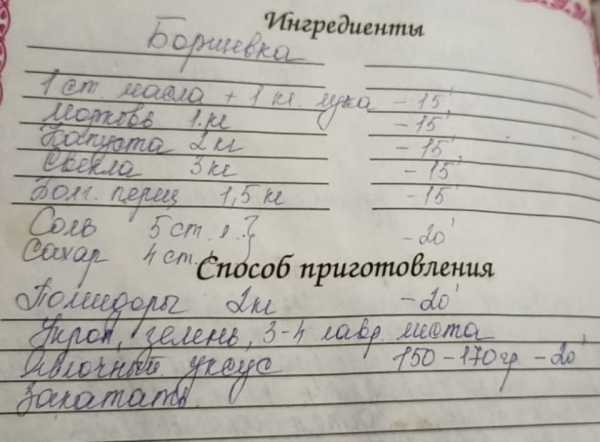 Ингредиенты
Борщевка
1 ст. масла + 1 кг. лука - 15'
Морковь 1. кг - 15'
Капуста 2 кг - 15'
Свекла 3 кг - 15'
Болг. перец 1,5 кг - 15'
Соль 5 ст. л. } - 20'
Сахар 4 ст.
Способ приготовления
Помидоры 2 кг - 20'
Укроп, зелень, 3-4 лавр. листа
Яблочный уксус 150-170 гр - 20'
Закатать